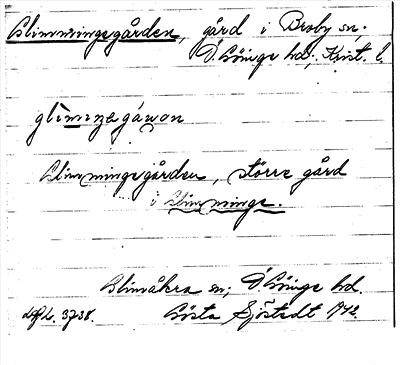 Glimmingegården, gård i Broby sn;
Ö. Göinge hd; Krist. l.
glìmıŋegáɹon
Glimmingegården, större gård
i Glimminge.
Glimåkra sn; Ö. Göinge hd.
LAL. 3738. Gösta Sjöstedt 1942.